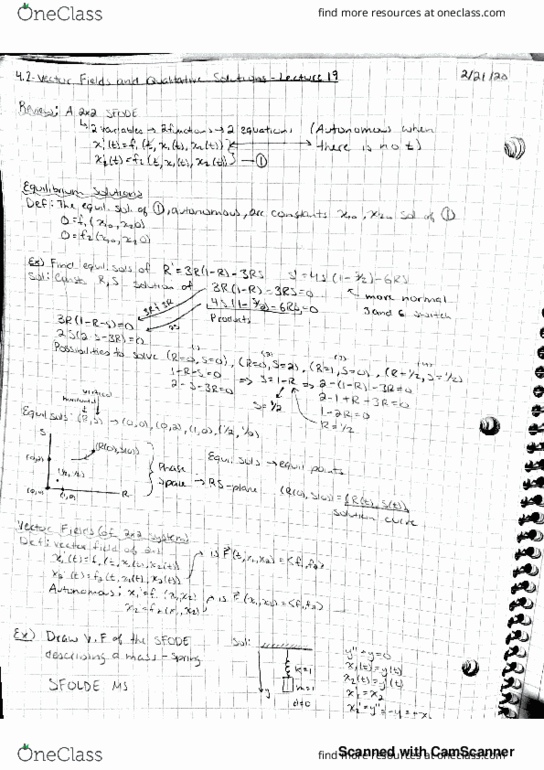 OneClass
find more resources at oneclass.com
4.2-Vector Fields and Qualitative Solutions - Lecture 19
2/21/20
Review: A 2x2 SFODE
↳ 2 variables → 2 functions → 2 equations (Autonomous when
x₁'(t)=f₁(t, x₁(t), x₂(t)) there is no t)
x₂'(t)=f₂(t, x₁(t), x₂(t)) — ①
Equilibrium Solutions
Def: The equil. sol. of ①, autonomous, are constants x₁₀, x₂₀ sol of ①
0=f₁(x₁₀, x₂₀)
0=f₂(x₁₀, x₂₀)
Ex) Find equil. sols of R'=3R(1-R)-3RS S'=4S(1-S/2)-6RS
Sol: Const R,S solution of 3R(1-R)-3RS=0
4S(1-S/2)-6RS=0
more normal
3 and 6 switch
Products
3R(1-R-S)=0
2S(2-S-3R)=0
Possibilities to solve (R=0, S=0), (R=0, S=2), (R=1, S=0), (R=1/2, S=1/2)
1-R-S=0 ⇒ S=1-R ⇒ 2-(1-R)-3R=0
2-S-3R=0
S=1/2
2-1+R+3R=0
1-2R=0
R=1/2
vertical
horizontal
Equil sols: (R,S) → (0,0), (0,2), (1,0), (1/2, 1/2)
S
(R(0),S(0))
(0,2)
(1/2, 1/2)
(0,0)
(1,0)
R
Phase
space → RS-plane
Equil sols → equil points
(R(t), S(t))
solution curve
Vector Fields (of 2x2 system)
Def: vector field of 2x1
x₁'(t)=f₁(t, x₁(t), x₂(t))
x₂'(t)=f₂(t, x₁(t), x₂(t))
is F(t, x₁, x₂)=<f₁, f₂>
Autonomous: x₁'=f₁(x₁, x₂)
x₂'=f₂(x₁, x₂)
is F(x₁, x₂)=<f₁, f₂>
Ex) Draw V.F of the SFODE
describing a mass-spring
SFOLDE MS
Sol:
k=1
m=1
d=0
y
y''+y=0
x₁(t)=y(t)
x₂(t)=y'(t)
x₁'=x₂
x₂'=y''=-y=-x₁
Scanned with CamScanner
OneClass
find more resources at oneclass.com